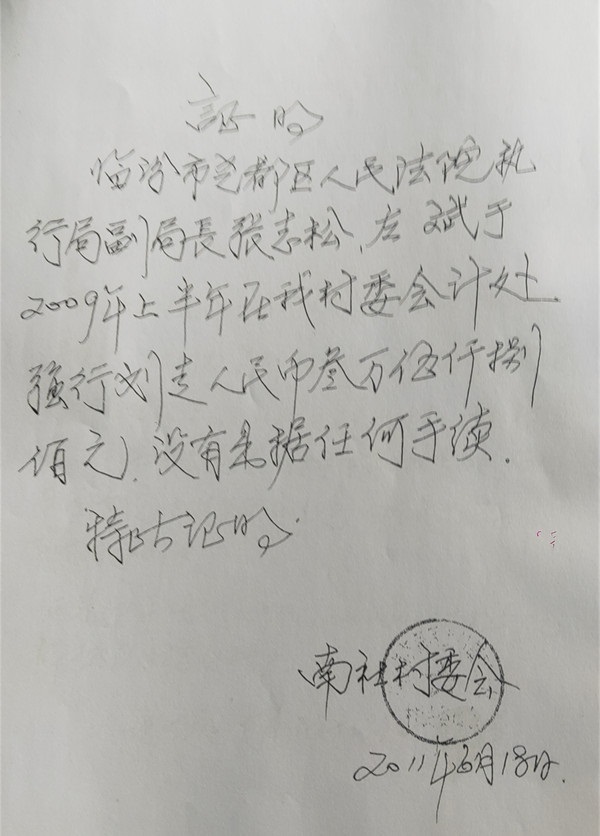 证明
临汾市尧都区人民法院执
行局副局長張志松、左斌于
2009年上半年在我村委会计处
强行划走人民币叁万伍仟捌
佰元.没有条据任何手续.
特此证明.
南社村委会
2011年6月18日.